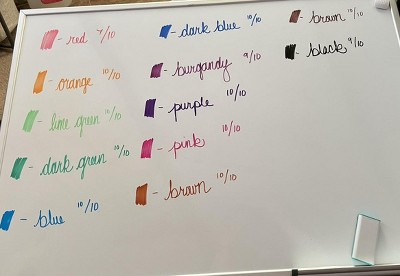 - red 7/10
- orange 10/10
- lime green 10/10
- dark green 10/10
- blue 10/10
- dark blue 10/10
- burgandy 9/10
- purple 10/10
- pink 10/10
- brown 10/10
- brown 10/10
- black 9/10